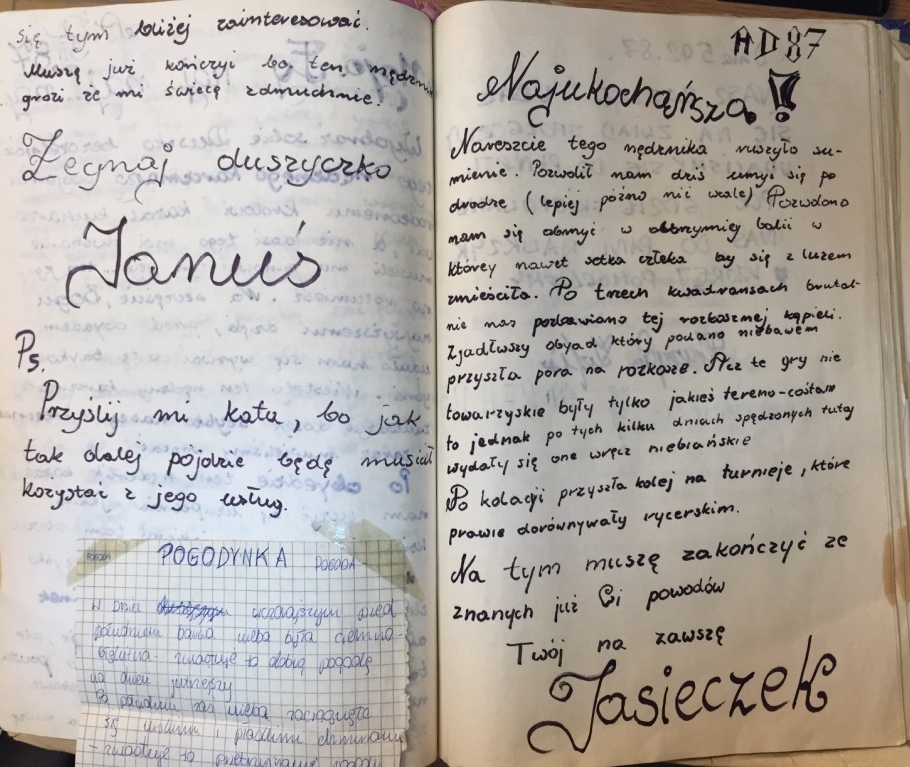 się tym bliżej zainteresować.
Muszę już kończyć bo ten nędznik
grozi że mi świecę zdmuchnie.
Żegnaj duszyczko
Januś
Ps.
Przyślij mi kata, bo jak
tak dalej pójdzie będę musiał
korzystać z jego usług.
POGODYNKA POGODA
W dniu wczorajszym przed
południem barwa nieba była ciemno-
błękitna - zwiastuje to dobrą pogodę
na dzień jutrzejszy
Po południu zaś niebo zaciągnęło
się i płaskimi chmurami
- zwiastuje to pogody
AD 87
Najukochańsza!
Nareszcie tego nędznika ruszyło su-
mienie. Pozwolił nam dziś umyć się po
drodze (lepiej późno niż wcale) Pozwolono
nam się obmyć w olbrzymiej balii w
której nawet setka człeka by się z luzem
zmieściła. Po trzech kwadransach brutal-
nie nas pozbawiono tej rozkosznej kąpieli.
Zjadłwszy obyad który podano niebawem
przyszła pora na rozkosze. Acz te gry nie
towarzyskie były tylko jakieś tereno-costam
to jednak po tych kilku dniach spędzonych tutaj
wydały się one wręcz niebiańskie
Po kolacji przyszła kolej na turnieje, które
prawie dorównywały rycerskim.
Na tym muszę zakończyć ze
znanych już Ci powodów
Twój na zawszę
Jasieczek